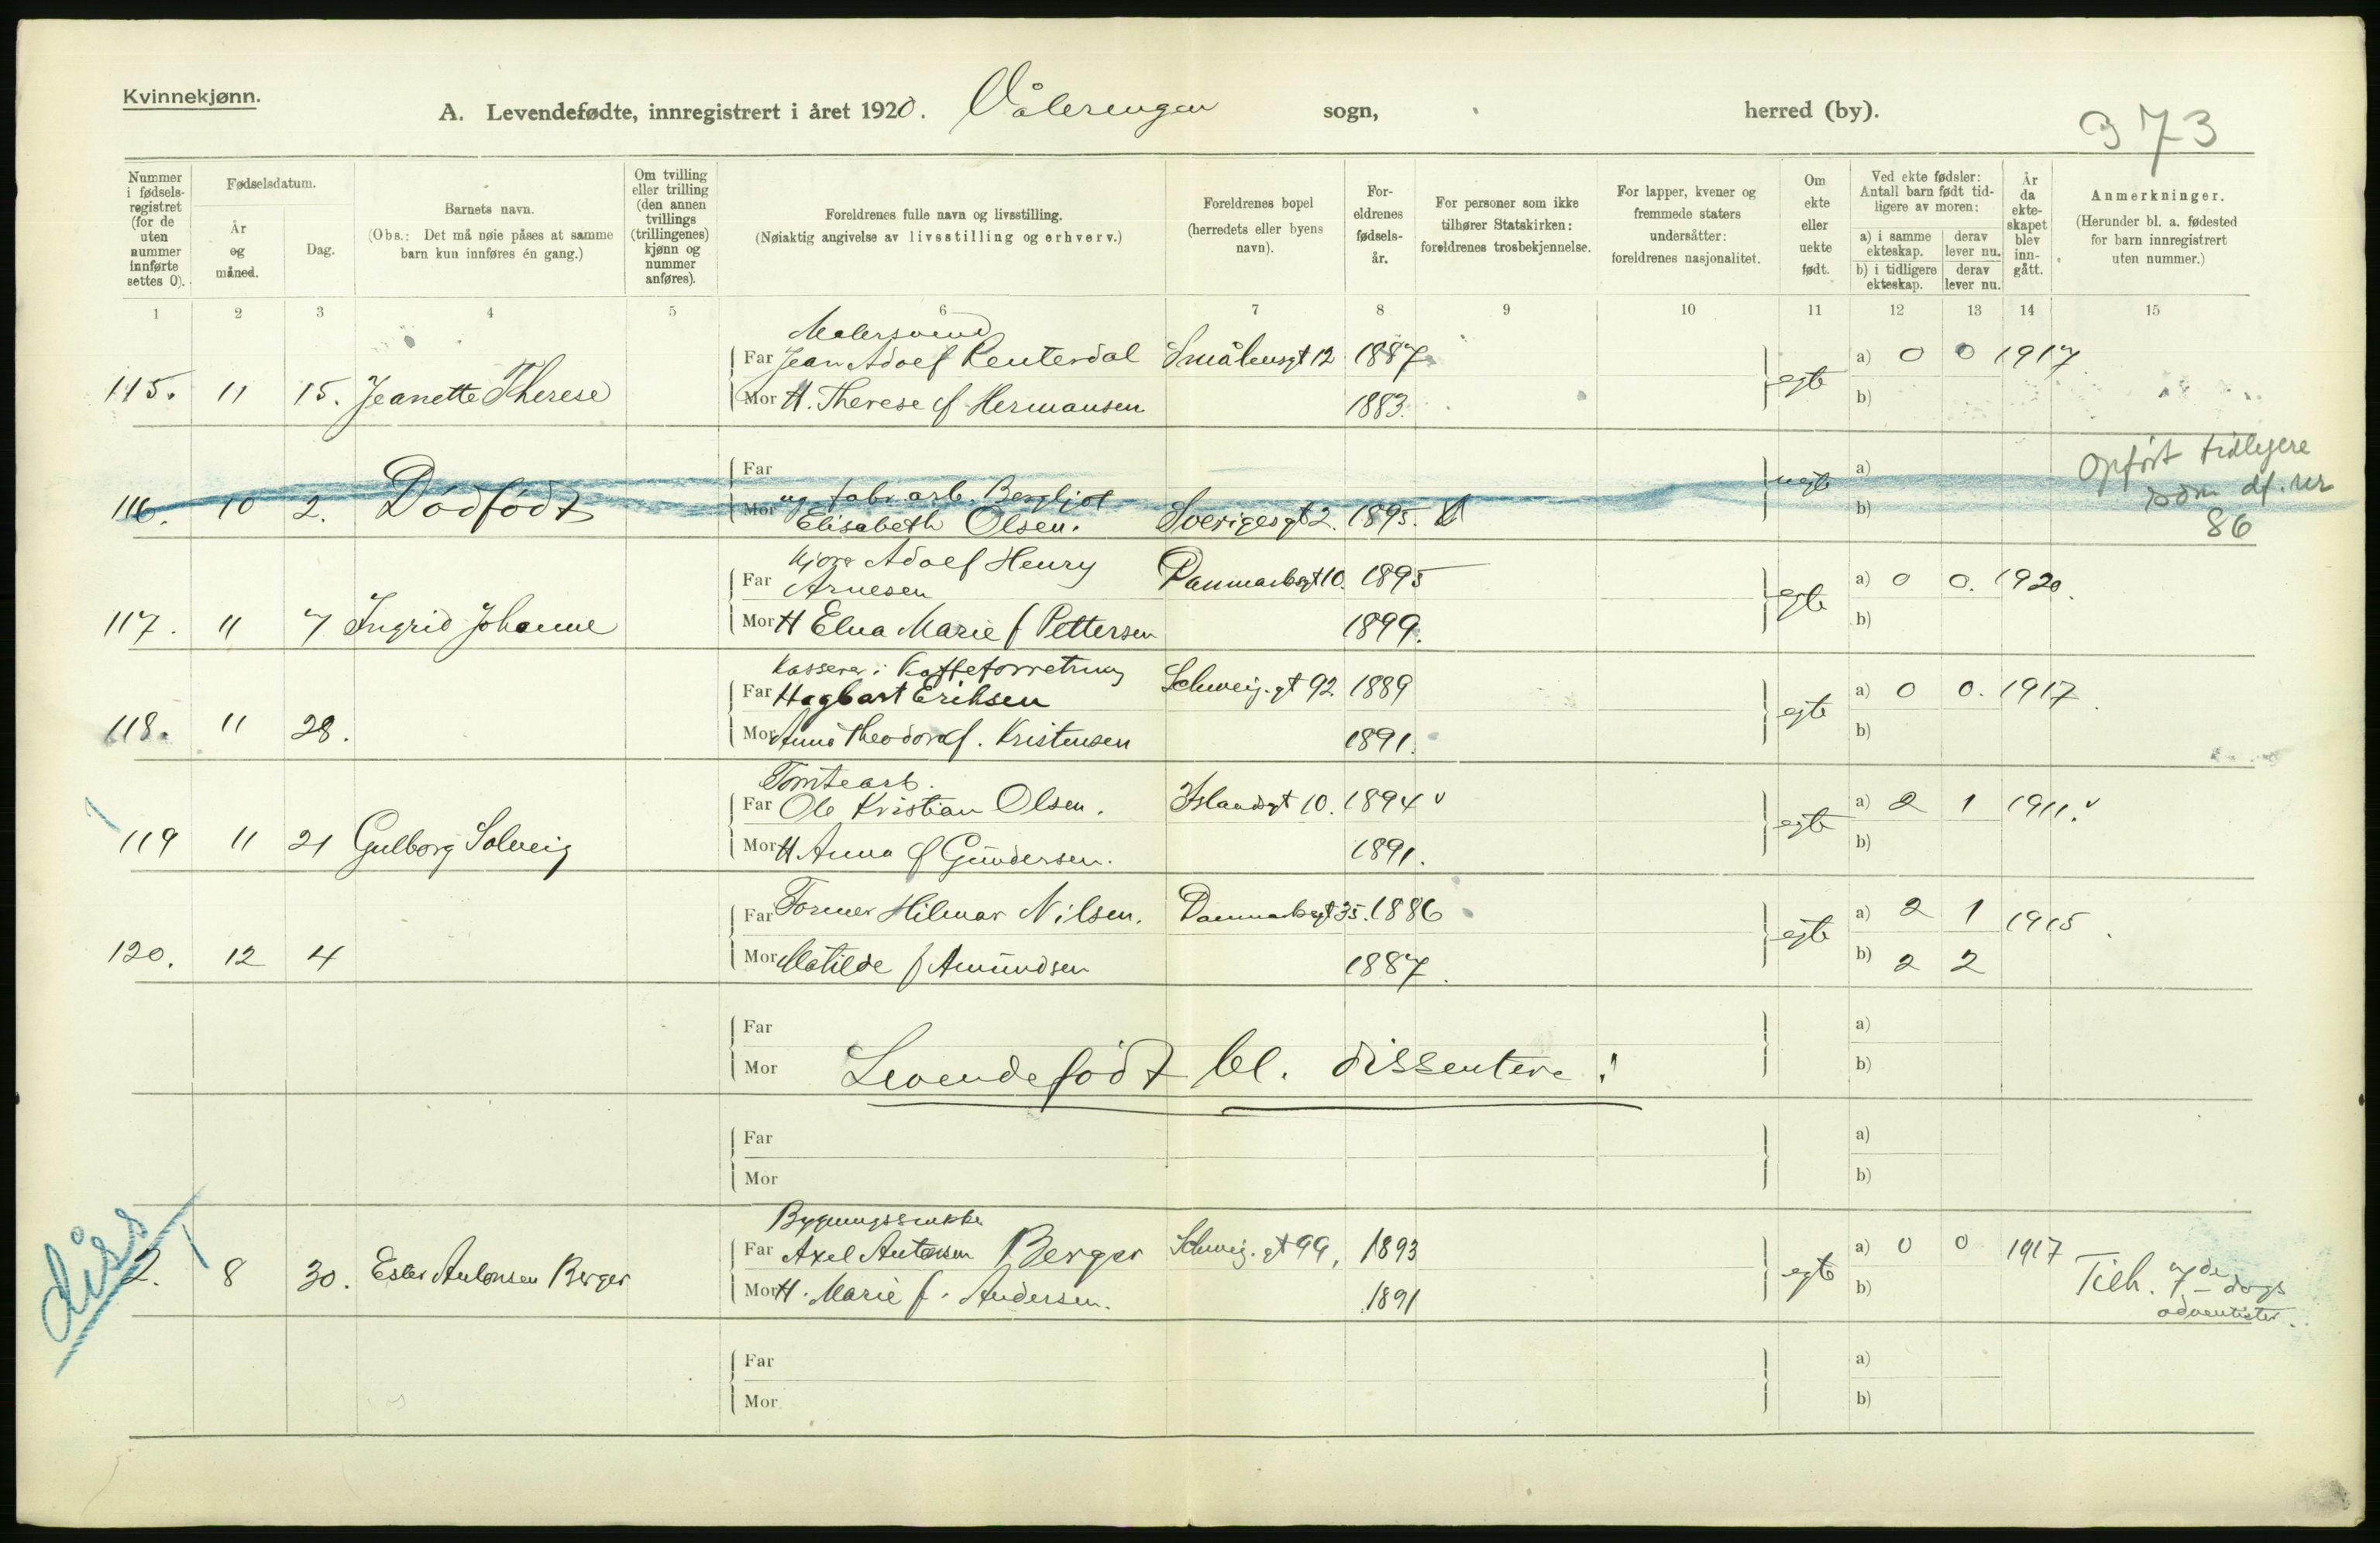 Kvinnekjønn.
A. Levendefødte, innregistrert i året 1920. Vålerengen sogn, herred (by).
373
Nummer i fødselsregistret (for de uten nummer innførte settes 0).
Fødselsdatum.
År og måned.
Dag.
Barnets navn.
(Obs.: Det må nøie påses at samme barn kun innføres én gang.)
Om tvilling eller trilling (den annen tvillings (trillingenes) kjønn og nummer anføres).
Foreldrenes fulle navn og livsstilling.
(Nøiaktig angivelse av livsstilling og erhverv.)
Foreldrenes bopel (herredets eller byens navn).
Foreldrenes fødselsår.
For personer som ikke tilhører Statskirken: foreldrenes trosbekjennelse.
For lapper, kvener og fremmede staters undersåtter: foreldrenes nasjonalitet.
Om ekte eller uekte født.
Ved ekte fødsler: Antall barn født tidligere av moren:
a) i samme ekteskap. derav lever nu.
b) i tidligere ekteskap. derav lever nu.
År da ekteskapet blev inngått.
Anmerkninger.
(Herunder bl. a. fødested for barn innregistrert uten nummer.)
1 2 3 4 5 6 7 8 9 10 11 12 13 14 15
Malersvend
Far Jean Adolf Reuterdal Smålensgt 12 1887 a) 0 0 1917
115. 11 15. Jeanette Therese Mor H. Therese f Hermansen 1883. egte b)
Far a) Opført tidligere
116. 10 2. Dødfødt Mor ug fabr. arb. Bergljot uegte b) som df. nr
Elisabeth Olsen. Sverigesgt 2. 1895. 86
Adolf Henry
Far Arnesen Danmarksgt 10. 1895 a) 0 0. 1920.
117. 11 7 Ingrid Johanne Mor H Elna Marie f Pettersen 1899. egte b)
Kasserer i Kaffeforretning
Far Hagbart Eriksen Schweig. gt 92 1889 a) 0 0. 1917.
118. 11 28. Mor Anna Theodora f. Kristensen 1891. egte b)
Tomtearb.
Far Ole Kristian Olsen. Islandsgt 10. 1894 a) 2 1 1911.
119 11 21 Gulborg Solveig Mor H Anna f Gundersen. 1891. egte b)
Far Former Hilmar Nilsen. Danmarksgt 35. 1886 a) 2 1 1915.
120. 12 4 Mor Matilde f Amundsen 1887. egte b) 2 2
Far a)
Mor Levendefødt bl. dissentere: b)
Far a)
Mor b)
diss
Far Axel Antonsen Berger Schweig. gt 99, 1893 a) 0 0 1917
2. 8 30. Ester Antonsen Berger Mor H. Marie f. Andersen. 1891 egte b) Tilh. 7de dags
adventister.
Far a)
Mor b)